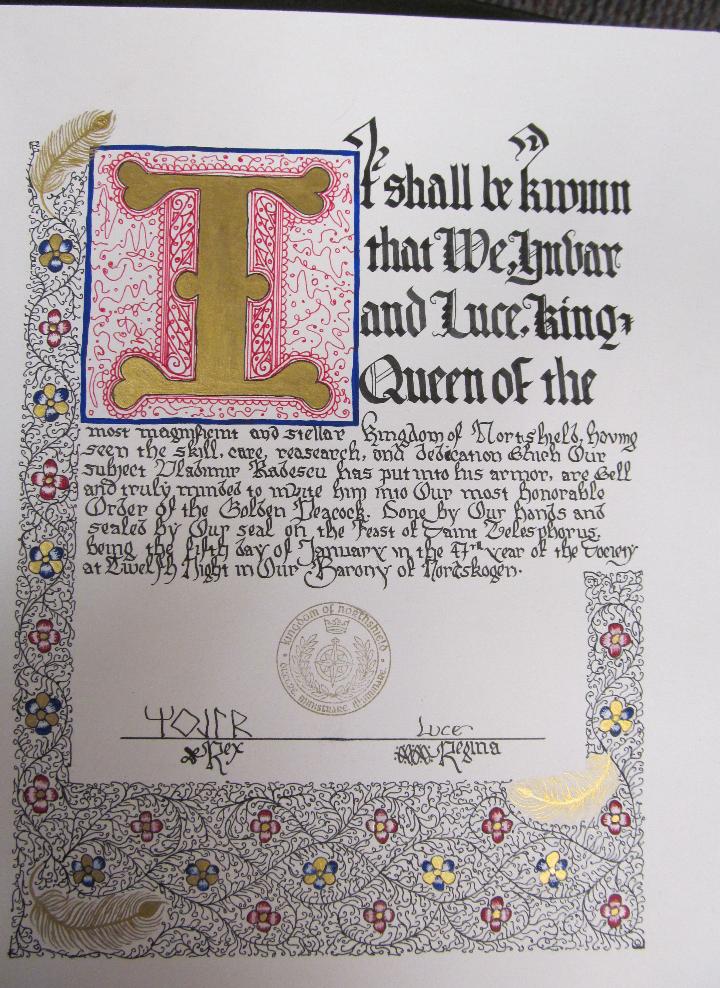 It shall be known
that We, Hvbar
and Luce, King,
Queen of the
most magnificent and stellar Kingdom of Nortshield, having
seen the skill, care, reasearch, and dedication which Our
subject Vladimir Radescu has put into his armor, are well
and truly minded to invite him into Our most honorable
Order of the Golden Peacock. Done by Our hands and
sealed by Our seal on the Feast of Saint Telesphorus,
being the fifth day of January in the year of the Society
at Twelfth Night in Our Barony of Nortskogen.
kingdom of northshield
ministrare illuminare
Luce
Rex
Regina